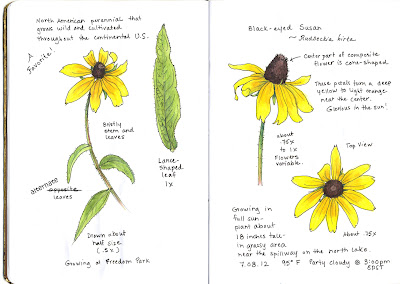 North American perennial that
grows wild and cultivated
throughout the continental U.S.
A
Favorite!
Bristly
stem and
leaves
Lance-
shaped
leaf
1x
alternate
opposite
leaves
Drawn about
half size
(.5x)
Growing at Freedom Park
Black-eyed Susan
~ Rudbeckia hirta
Center part of composite
flower is cone-shaped
These petals turn a deep
yellow to light orange
near the center.
Glorious in the sun!
about
.75x
to 1x
Flowers
variable.
Top View
About .75x
Growing in
full sun-
plant about
18 inches tall-
in grassy area
near the spillway on the north lake.
7.08.12 95° F Partly Cloudy @ 3:00pm
EDST